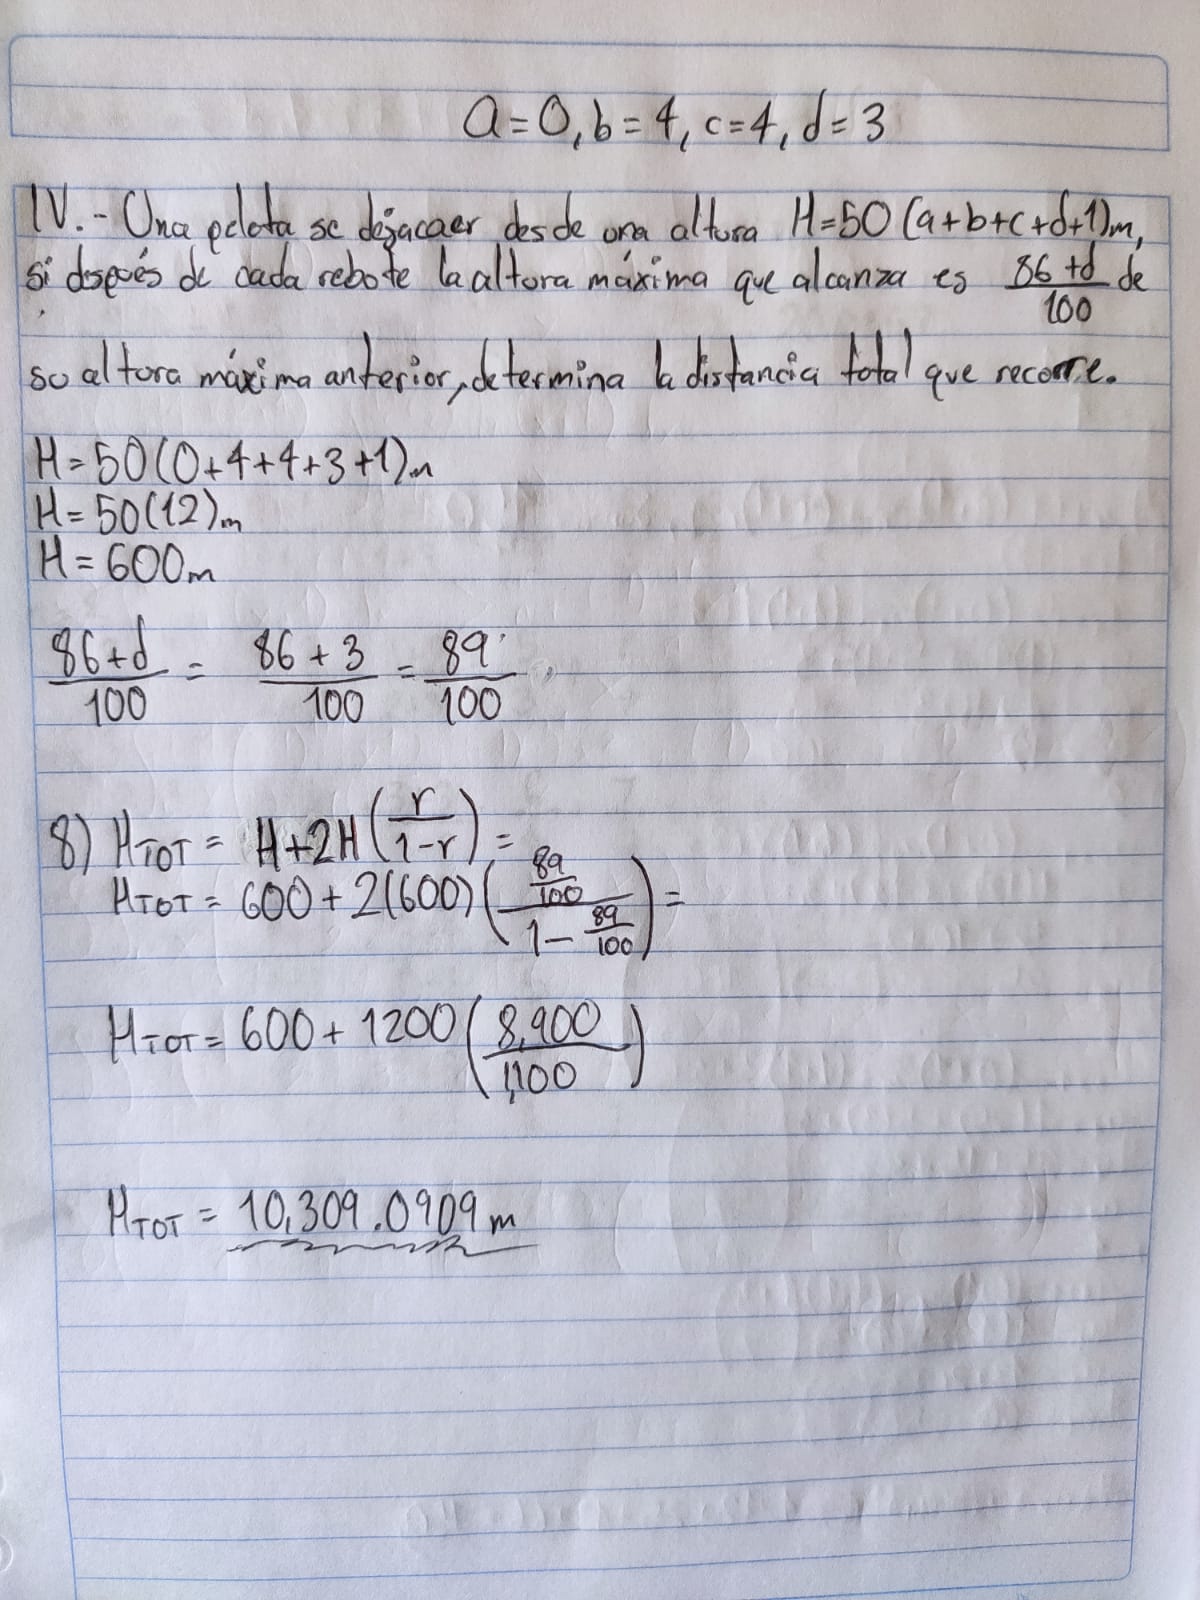 a=0, b=4, c=4, d=3
IV.- Una pelota se dejacaer desde una altura H=50(a+b+c+d+1)m,
si después de cada rebote la altura máxima que alcanza es \frac{86+d}{100} de
su altura máxima anterior, determina la distancia total que recorre.
H=50(0+4+4+3+1)m
H=50(12)m
H=600m
\frac{86+d}{100} = \frac{86+3}{100} = \frac{89}{100}
8) H_{TOT} = H+2H(\frac{r}{1-r}) =
H_{TOT} = 600+2(600)(\frac{\frac{89}{100}}{1-\frac{89}{100}}) =
H_{TOT} = 600+1200(\frac{8,900}{1,100})
H_{TOT} = 10,309.0909m